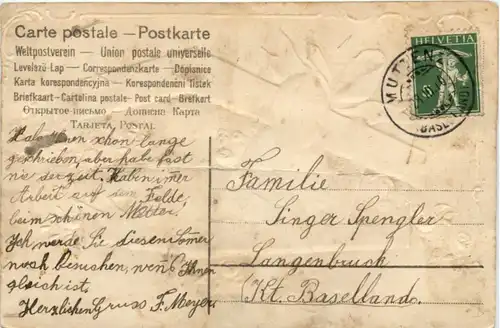 Carte postale — Postkarte
Weltpostverein — Union postale universelle
Levelezü-Lap — Correspondenzkarte — Dopisnice
Karta korespondencyjna — Korespondenční Lístek
Briefkaart - Cartolina postale - Post card - Brefkort
Открытое письмо — Дописна Карта
TARJETA POSTAL
HELVETIA
MUTTENZ
Habe Ihnen schon lange
geschrieben, aber habe fast
nie der Zeit, haben imer
Arbeit auf dem Felde,
beim schönen Wetter.
Ich werde Sie diesen Somer
noch besuchen, wen's Ihnen
gleich ist.
Herzlichen Gruss F. Meyer
Familie
Singer Spengler
Langenbruck
(Kt. Baselland.)